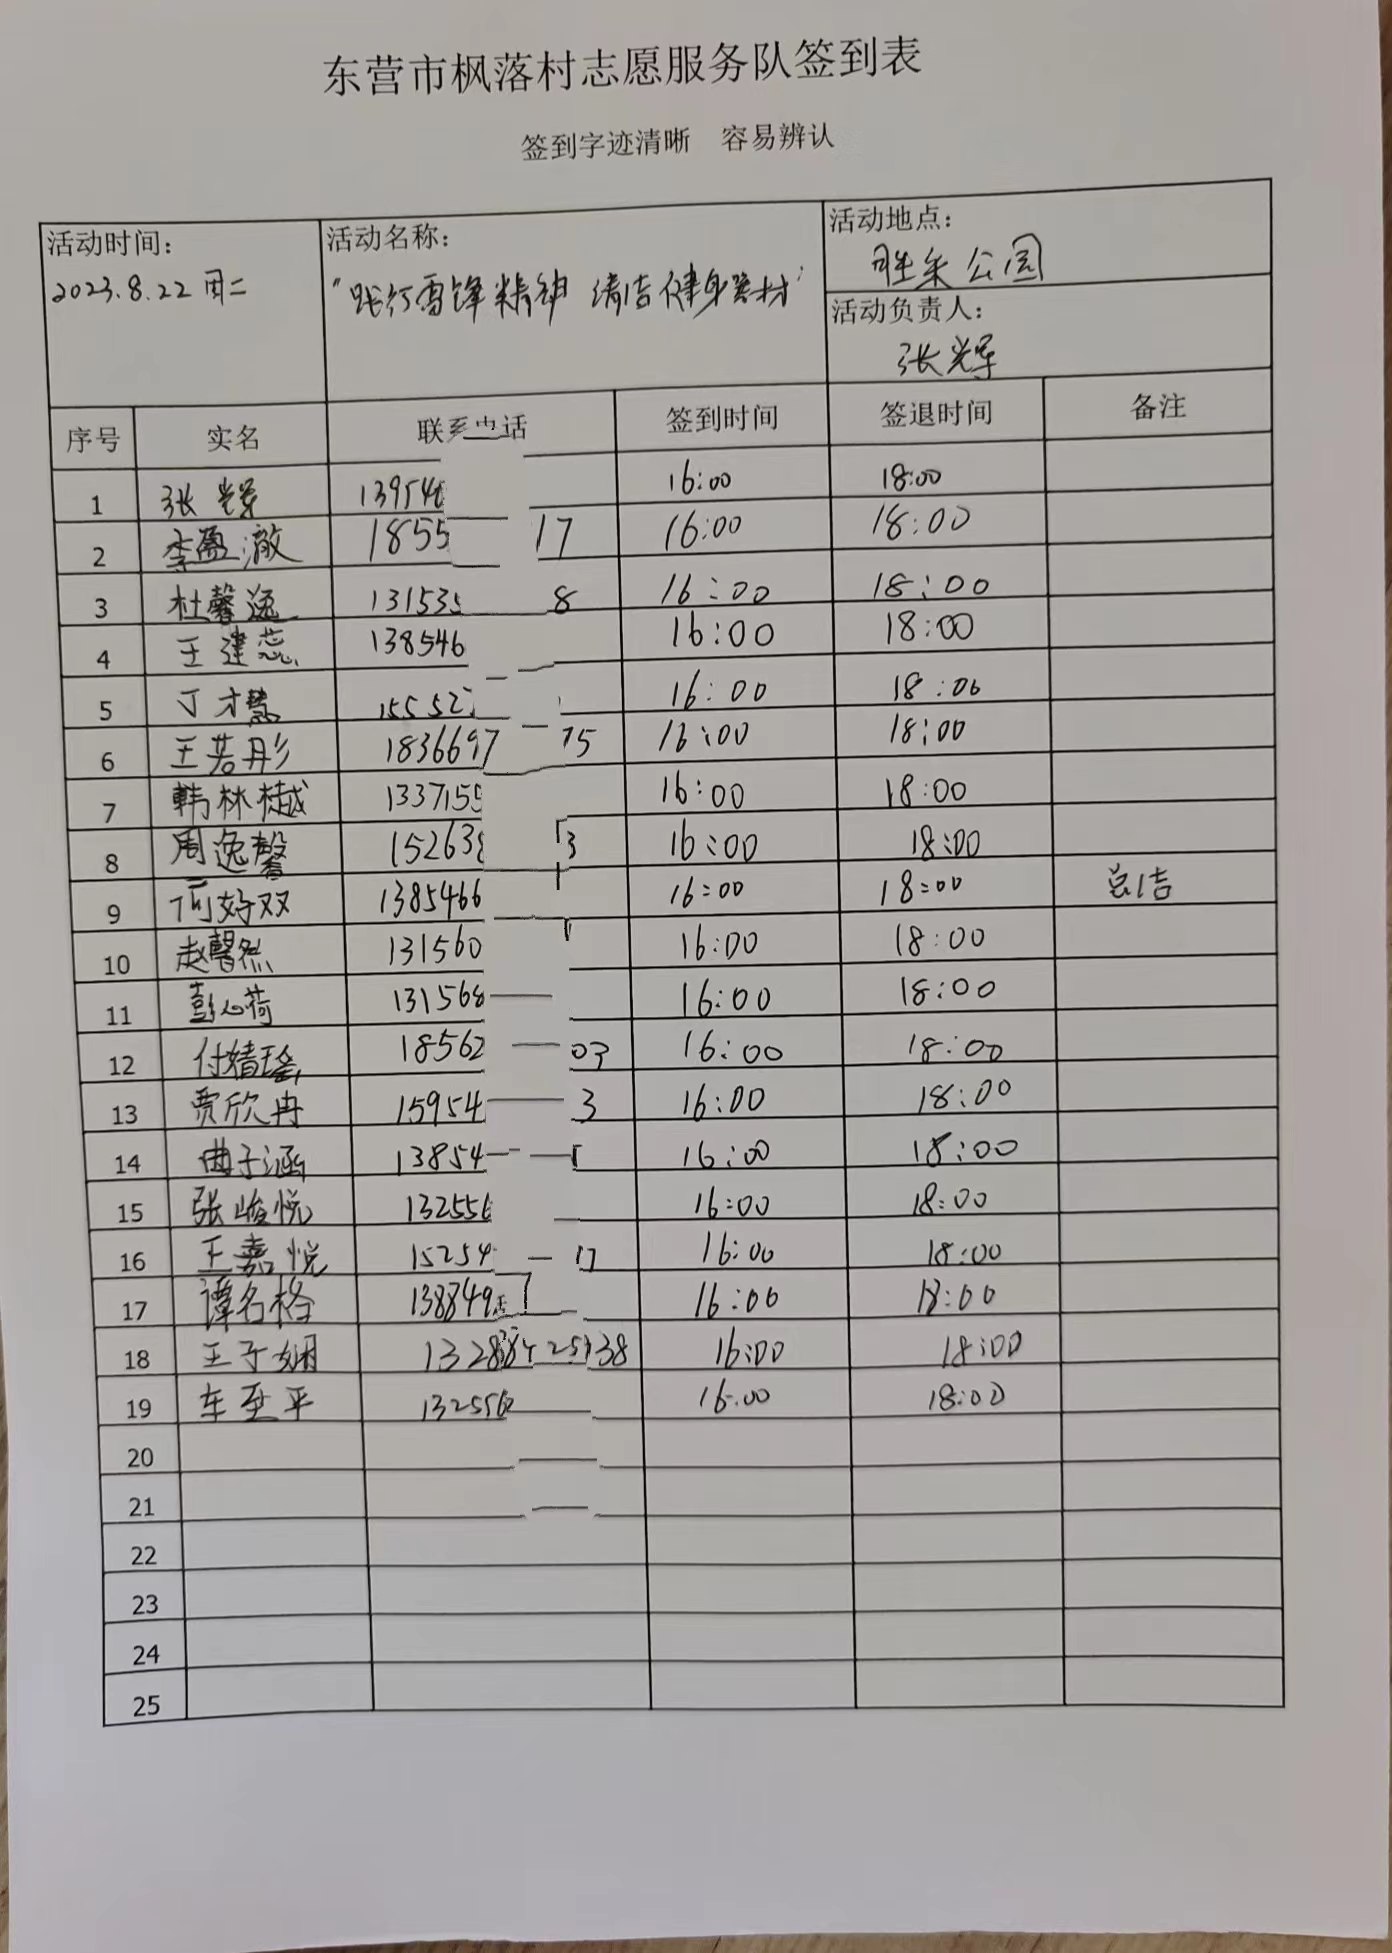 东营市枫落村志愿服务队签到表
签到字迹清晰 容易辨认
活动时间： 活动名称： 活动地点：
2023.8.22 周二 "践行雷锋精神 清洁健身器材" 胜采公园
活动负责人：
张辉
序号 实名 联系电话 签到时间 签退时间 备注
1 张辉 13954 16:00 18:00
2 李盈澈 1855 17 16:00 18:00
3 杜馨逸 131535 8 16:00 18:00
4 王建蕊 138546 16:00 18:00
5 丁才慧 15552 16:00 18:00
6 王若彤 1836697 75 16:00 18:00
7 韩林樾 133715 16:00 18:00
8 周逸馨 15263 3 16:00 18:00
9 好双 1385466 16:00 18:00 总结
10 赵馨然 131560 16:00 18:00
11 彭心荷 131568 16:00 18:00
12 付婧瑶 18562 03 16:00 18:00
13 贾欣冉 15954 3 16:00 18:00
14 曲子涵 13854 16:00 18:00
15 张峻悦 132556 16:00 18:00
16 王嘉悦 15254 17 16:00 18:00
17 谭名格 138849 16:00 18:00
18 王子娴 1328 38 16:00 18:00
19 车至平 132556 16:00 18:00
20
21
22
23
24
25